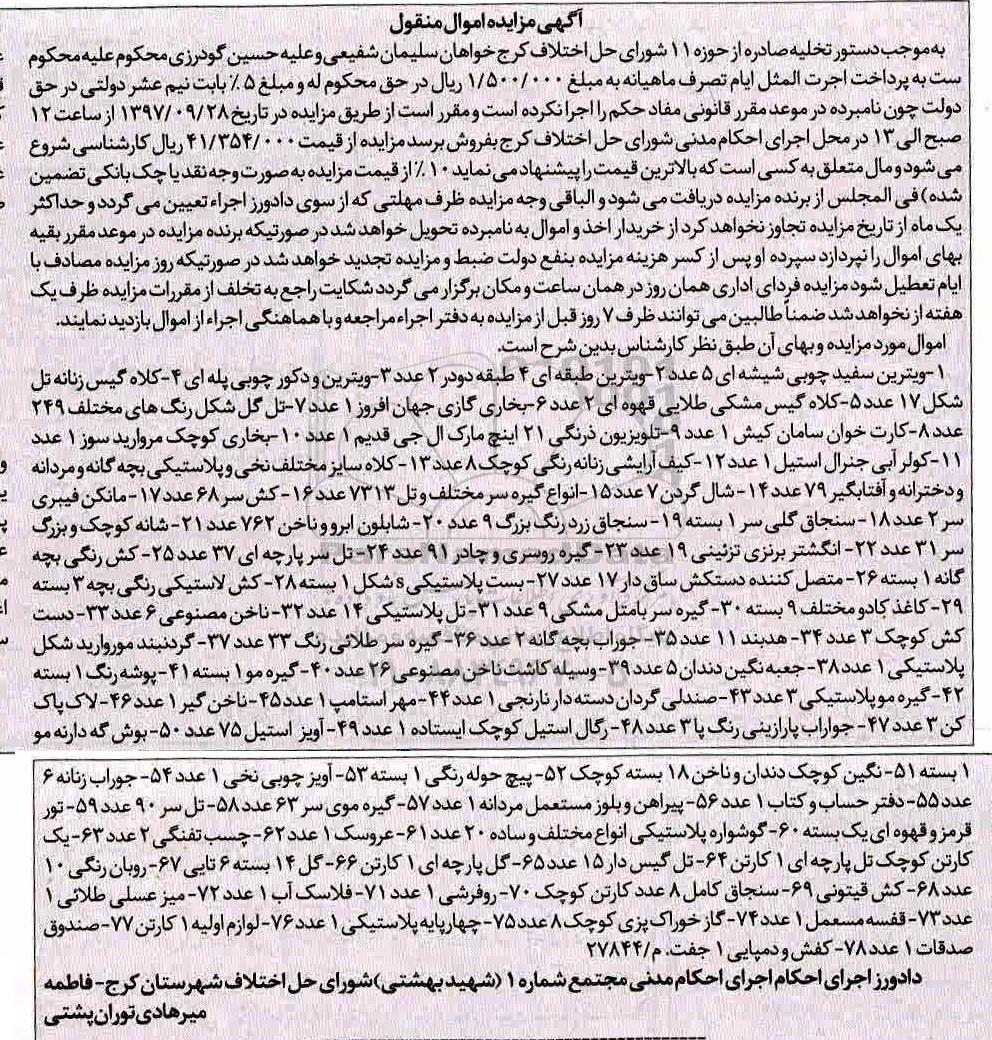 آگهی مزایده اموال منقول
به موجب دستور تخلیه صادره از حوزه ۱۱ شورای حل اختلاف کرج خواهان سلیمان شفیعی و علیه حسین گودرزی محکوم علیه محکوم
ست به پرداخت اجرت المثل ایام تصرف ماهیانه به مبلغ ۱/۵۰۰/۰۰۰ ریال در حق محکوم له و مبلغ ۵٪ بابت نیم عشر دولتی در حق
دولت چون نامبرده در موعد مقرر قانونی مفاد حکم را اجرا نکرده است و مقرر است از طریق مزایده در تاریخ ۱۳۹۷/۰۹/۲۸ از ساعت ۱۲
صبح الی ۱۳ در محل اجرای احکام مدنی شورای حل اختلاف کرج بفروش برسد مزایده از قیمت ۴۱/۳۵۴/۰۰۰ ریال کارشناسی شروع
می شود و مال متعلق به کسی است که بالاترین قیمت را پیشنهاد می نماید ۱۰٪ از قیمت مزایده به صورت وجه نقد یا چک بانکی تضمین
شده) فی المجلس از برنده مزایده دریافت می شود و الباقی وجه مزایده ظرف مهلتی که از سوی دادورز اجراء تعیین می گردد و حداکثر
یک ماه از تاریخ مزایده تجاوز نخواهد کرد از خریدار اخذ و اموال به نامبرده تحویل خواهد شد در صورتیکه برنده مزایده در موعد مقرر بقیه
بهای اموال را نپردازد سپرده او پس از کسر هزینه مزایده بنفع دولت ضبط و مزایده تجدید خواهد شد در صورتیکه روز مزایده مصادف با
ایام تعطیل شود مزایده فردای اداری همان روز در همان ساعت و مکان برگزار می گردد شکایت راجع به تخلف از مقررات مزایده ظرف یک
هفته از نخواهد شد ضمناً طالبین می توانند ظرف ۷ روز قبل از مزایده به دفتر اجراء مراجعه و با هماهنگی اجراء از اموال بازدید نمایند.
اموال مورد مزایده و بهای آن طبق نظر کارشناس بدین شرح است.
۱-ویترین سفید چوبی شیشه ای ۵ عدد ۲-ویترین طبقه ای ۴ طبقه دودر ۲ عدد ۳-ویترین و دکور چوبی پله ای ۴-کلاه گیس زنانه تل
شکل ۱۷ عدد ۵-کلاه گیس مشکی طلایی قهوه ای ۲ عدد ۶-بخاری گازی جهان افروز ۱ عدد ۷-تل گل شکل رنگ های مختلف ۲۴۹
عدد ۸-کارت خوان سامان کیش ۱ عدد ۹-تلویزیون ذرنگی ۲۱ اینچ مارک ال جی قدیم ۱ عدد ۱۰-بخاری کوچک مروارید سوز ۱ عدد
۱۱-کولر آبی جنرال استیل ۱ عدد ۱۲-کیف آرایشی زنانه رنگی کوچک ۸ عدد ۱۳-کلاه سایز مختلف نخی و پلاستیکی بچه گانه و مردانه
و دخترانه و آفتابگیر ۷۹ عدد ۱۴-شال گردن ۷ عدد ۱۵-انواع گیره سر مختلف و تل ۷۳۱۳ عدد ۱۶-کش سر ۶۸ عدد ۱۷-مانکن فیبری
سر ۲ عدد ۱۸-سنجاق گلی سر ۱ بسته ۱۹-سنجاق زرد رنگ بزرگ ۹ عدد ۲۰-شابلون ابرو و ناخن ۷۶۲ عدد ۲۱-شانه کوچک و بزرگ
سر ۳۱ عدد ۲۲-انگشتر برنزی تزئینی ۱۹ عدد ۲۳-گیره روسری و چادر ۹۱ عدد ۲۴-تل سر پارچه ای ۳۷ عدد ۲۵-کش رنگی بچه
گانه ۱ بسته ۲۶-متصل کننده دستکش ساق دار ۱۷ عدد ۲۷-بست پلاستیکی s شکل ۱ بسته ۲۸-کش لاستیکی رنگی بچه ۳ بسته
۲۹-کاغذ کادو مختلف ۹ بسته ۳۰-گیره سر بامتل مشکی ۹ عدد ۳۱-تل پلاستیکی ۱۴ عدد ۳۲-ناخن مصنوعی ۶ عدد ۳۳-دست
کش کوچک ۳ عدد ۳۴-هدبند ۱۱ عدد ۳۵-جوراب بچه گانه ۲ عدد ۳۶-گیره سر طلائی رنگ ۳۳ عدد ۳۷-گردنبند موروارید شکل
پلاستیکی ۱ عدد ۳۸-جعبه نگین دندان ۵ عدد ۳۹-وسیله کاشت ناخن مصنوعی ۲۶ عدد ۴۰-گیره مو ۱ بسته ۴۱-پوشه رنگ ۱ بسته
۴۲-گیره مو پلاستیکی ۳ عدد ۴۳-صندلی گردان دسته دار نارنجی ۱ عدد ۴۴-مهر استامپ ۱ عدد ۴۵-ناخن گیر ۱ عدد ۴۶-لاک پاک
کن ۳ عدد ۴۷-جواراب پارازینی رنگ پا ۳ عدد ۴۸-رگال استیل کوچک ایستاده ۱ عدد ۴۹-آویز استیل ۷۵ عدد ۵۰-بوش گه دارنه مو
۱ بسته ۵۱-نگین کوچک دندان و ناخن ۱۸ بسته کوچک ۵۲-پیچ حوله رنگی ۱ بسته ۵۳-آویز چوبی نخی ۱ عدد ۵۴-جوراب زنانه ۶
عدد ۵۵-دفتر حساب و کتاب ۱ عدد ۵۶-پیراهن و بلوز مستعمل مردانه ۱ عدد ۵۷-گیره موی سر ۶۳ عدد ۵۸-تل سر ۹۰ عدد ۵۹-تور
قرمز و قهوه ای یک بسته ۶۰-گوشواره پلاستیکی انواع مختلف و ساده ۲۰ عدد ۶۱-عروسک ۱ عدد ۶۲-چسب تفنگی ۲ عدد ۶۳-یک
کارتن کوچک تل پارچه ای ۱ کارتن ۶۴-تل گیس دار ۱۵ عدد ۶۵-گل پارچه ای ۱ کارتن ۶۶-گل ۱۴ بسته ۶ تایی ۶۷-روبان رنگی ۱۰
عدد ۶۸-کش قیتونی ۶۹-سنجاق کامل ۸ عدد کارتن کوچک ۷۰-روفرشی ۱ عدد ۷۱-فلاسک آب ۱ عدد ۷۲-میز عسلی طلائی ۱
عدد ۷۳-قفسه مسعمل ۱ عدد ۷۴-گاز خوراک پزی کوچک ۸ عدد ۷۵-چهارپایه پلاستیکی ۱ عدد ۷۶-لوازم اولیه ۱ کارتن ۷۷-صندوق
صدقات ۱ عدد ۷۸-کفش و دمپایی ۱ جفت. م/۲۷۸۴۴
دادورز اجرای احکام اجرای احکام مدنی مجتمع شماره ۱ (شهید بهشتی) شورای حل اختلاف شهرستان کرج-فاطمه
میرهادی توران پشتی